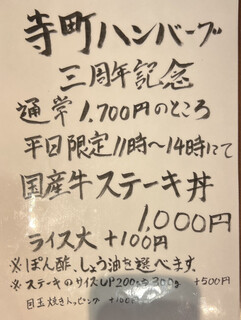 寺町ハンバーグ
三周年記念
通常1,700円のところ
平日限定11時~14時にて
国産牛ステーキ丼
1,000円
ライス大 +100円
※ぽん酢、しょう油を選べます。
※ステーキのサイズUP 200g→300g +500円
目玉焼きトッピング +100円